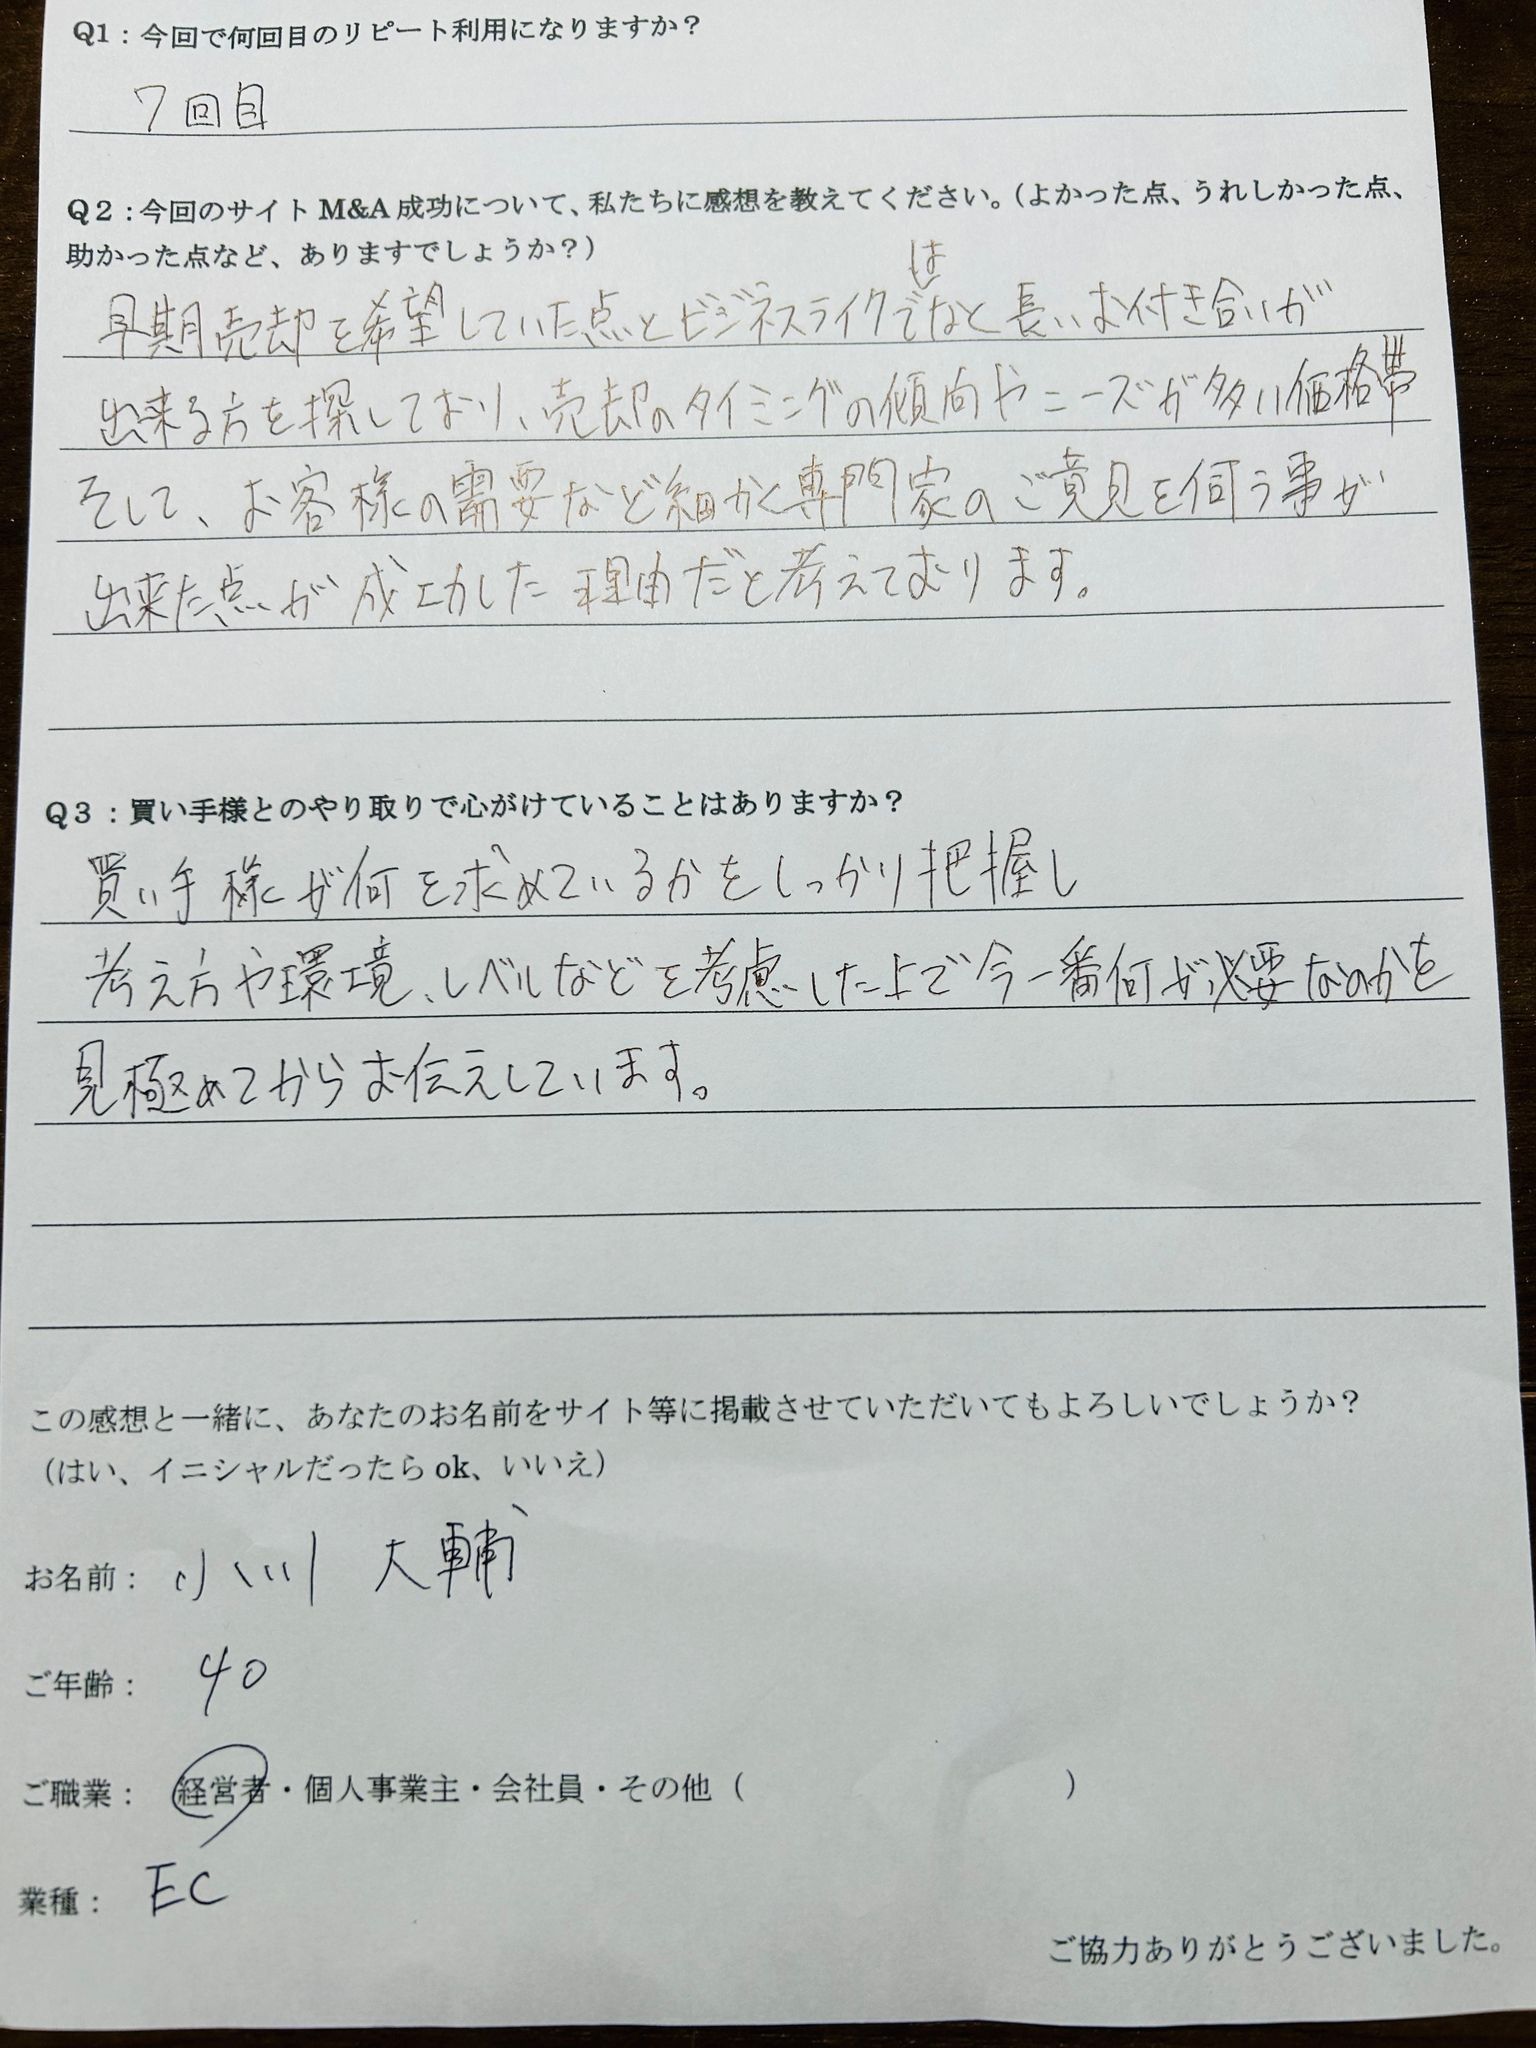 Q1：今回で何回目のリピート利用になりますか？
7回目
Q２：今回のサイト M&A 成功について、私たちに感想を教えてください。（よかった点、うれしかった点、
助かった点など、ありますでしょうか？）
早期売却を希望していた点とビジネスライクではなと長いお付き合いが
出来る方を探しており、売却のタイミングの傾向やニーズが多い価格帯
そして、お客様の需要など細かく専門家のご意見を伺う事が
出来た点が成功した理由だと考えております。
Q３：買い手様とのやり取りで心がけていることはありますか？
買い手様が何を求めているかをしっかり把握し
考え方や環境、レベルなどを考慮した上で今一番何が必要なのかを
見極めてからお伝えしています。
この感想と一緒に、あなたのお名前をサイト等に掲載させていただいてもよろしいでしょうか？
（はい、イニシャルだったら ok、いいえ）
お名前： 小川 大輔
ご年齢： 40
ご職業： 経営者・個人事業主・会社員・その他（ ）
業種： EC
ご協力ありがとうございました。